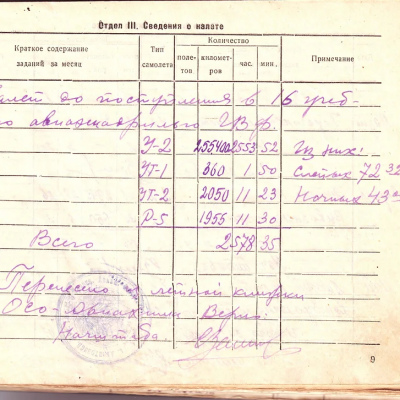 Отдел III. Сведения о налете
Краткое содержание заданий за месяц
Тип самолета
Количество
полетов
километров
час.
мин.
Примечание
Налет до поступления в 16
У-2 255400 2553 52 Из них:
УТ-1 360 1 50 Слепых 72 32
УТ-2 2050 11 23 Ночных 43
Р-5 1955 11 30
Всего 2578 35
Перенесено летной книжки
Осо-Авиахима Верно:
9